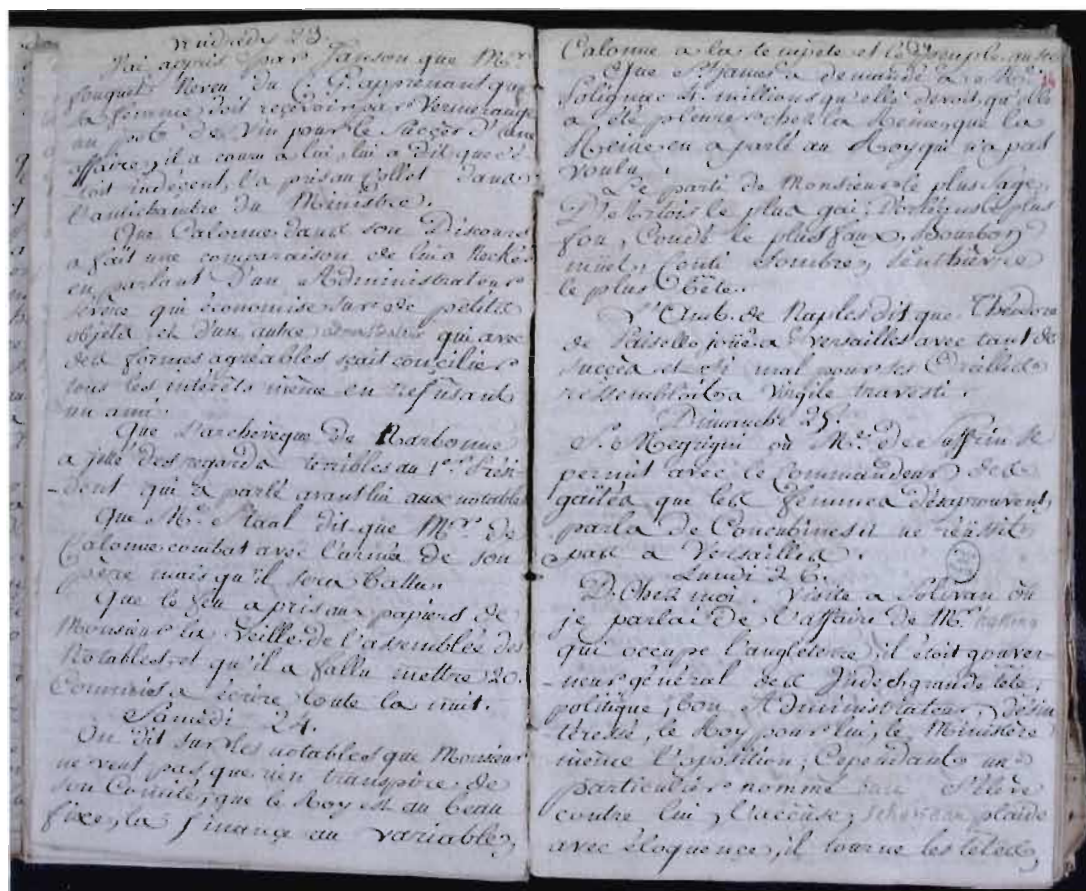 Vendredy 23.
J'ai appris par Janson que Mr.
fouquet Neveu du C. G. apprenant que
sa femme doit recevoir par Vermerange
un pot de vin pour le succès d'une
affaire, il a couru a lui, lui a dit que c'é-
toit indécent, l'a pris au collet dans
l'antichambre du Ministre.
Que Calonne dans son Discours
a fait une comparaison de lui a Necker
en parlant d'un Administrateur
sévère qui économise sur de petits
objets, et d'un autre qui avec
des formes agréables sçait concilier
tous les intérêts même en refusant
un ami.
Que L'archevêque de Narbonne
a jetté des regards terribles au 1er. Prési-
-dent qui a parlé avant lui aux notables
Que Me. Staal dit que Mr. de
Calonne combat avec l'armée de son
père mais qu'il sera battu.
Que le feu a pris aux papiers de
Monsieur la veille de l'assemblée des
Notables, et qu'il a fallu mettre 20.
Commis a écrire toute la nuit.
Samedi 24.
On dit sur les notables que Monsieur
ne veut pas que rien transpire de
son Comité, que le Roy est au beau
fixe, la finance au variable,
Calonne a la tempête et le peuple au sec
Que St. James a demandé a Me.
Polignac 4. millions qu'elle devoit, qu'elle
a été pleurer chez la Reine, que la
Reine en a parlé au Roy qui n'a pas
voulu.
Le parti de Monsieur le plus sage,
D'Artois le plus gai, D'orléans le plus
fou, Condé le plus faux, Bourbon
muet, Conti sombre, Penthièvre
le plus bête.
L'Amb. de Naples dit que Théodore
de Paisello joüé a Versailles avec tant de
succès et si mal pour ses Oreilles
ressembloit a Virgile travesti.
Dimanche 25.
S. Megrigni où Mr. de Suffrin se
permit avec le Commandeur des
gaités que les femmes désaprouvent,
parla de Concubines il ne réussit
pas a Versailles.
Lundi 26.
D. Chez moi. Visite a Solivan où
je parlai de l'affaire de Mr. Hasting
qui occupe l'angleterre, il étoit gouver-
-neur général des Indes, grande tête,
politique, bon Administrateur, désin-
téressé, le Roy pour lui, le Ministère
même l'oposition; Cependant un
particulier nommé s'élève
contre lui, l'accuse, plaide
avec éloquence, il tourne les têtes,